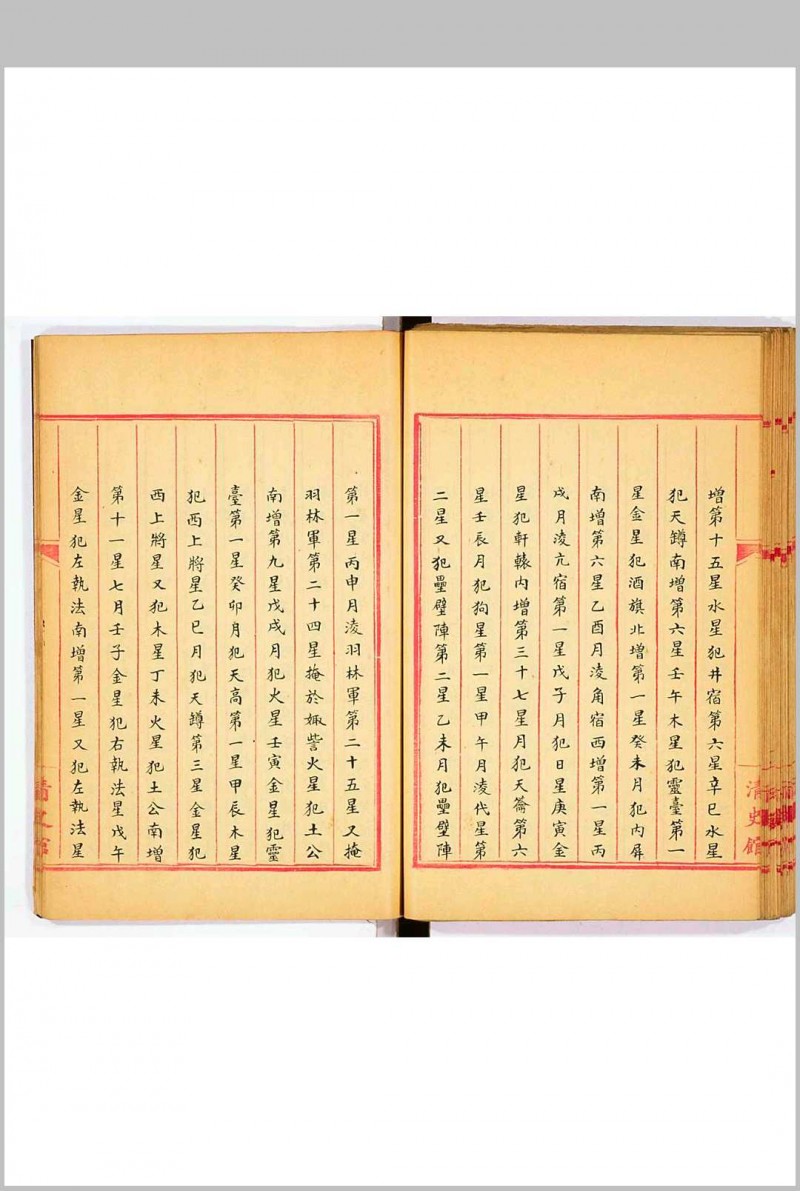 增第十五星水星犯井宿第六星辛巳水星
犯天罇南增第六星壬午木星犯靈臺第一
星金星犯酒旗北增第一星癸未月犯内屏
南增第六星乙酉月淩角宿西增第一星丙
戌月淩亢宿第一星戊子月犯日星庚寅金
星犯軒轅内增第三十七星月犯天籥第六
星壬辰月犯狗星第一星甲午月淩代星第
二星又犯壘壁陣第二星乙未月犯壘壁陣
第一星丙申月淩羽林軍第二十五星又掩
羽林軍第二十四星掩於娵訾火星犯土公
南增第九星戊戌月犯火星壬寅金星犯靈
臺第一星癸卯月犯天高第一星甲辰木星
犯西上將星乙巳月犯天罇第三星金星犯
西上將星又犯木星丁未火星犯土公南增
第十一星七月壬子金星犯右執法星戊午
金星犯左執法南增第一星又犯左執法星
清史館
清史館